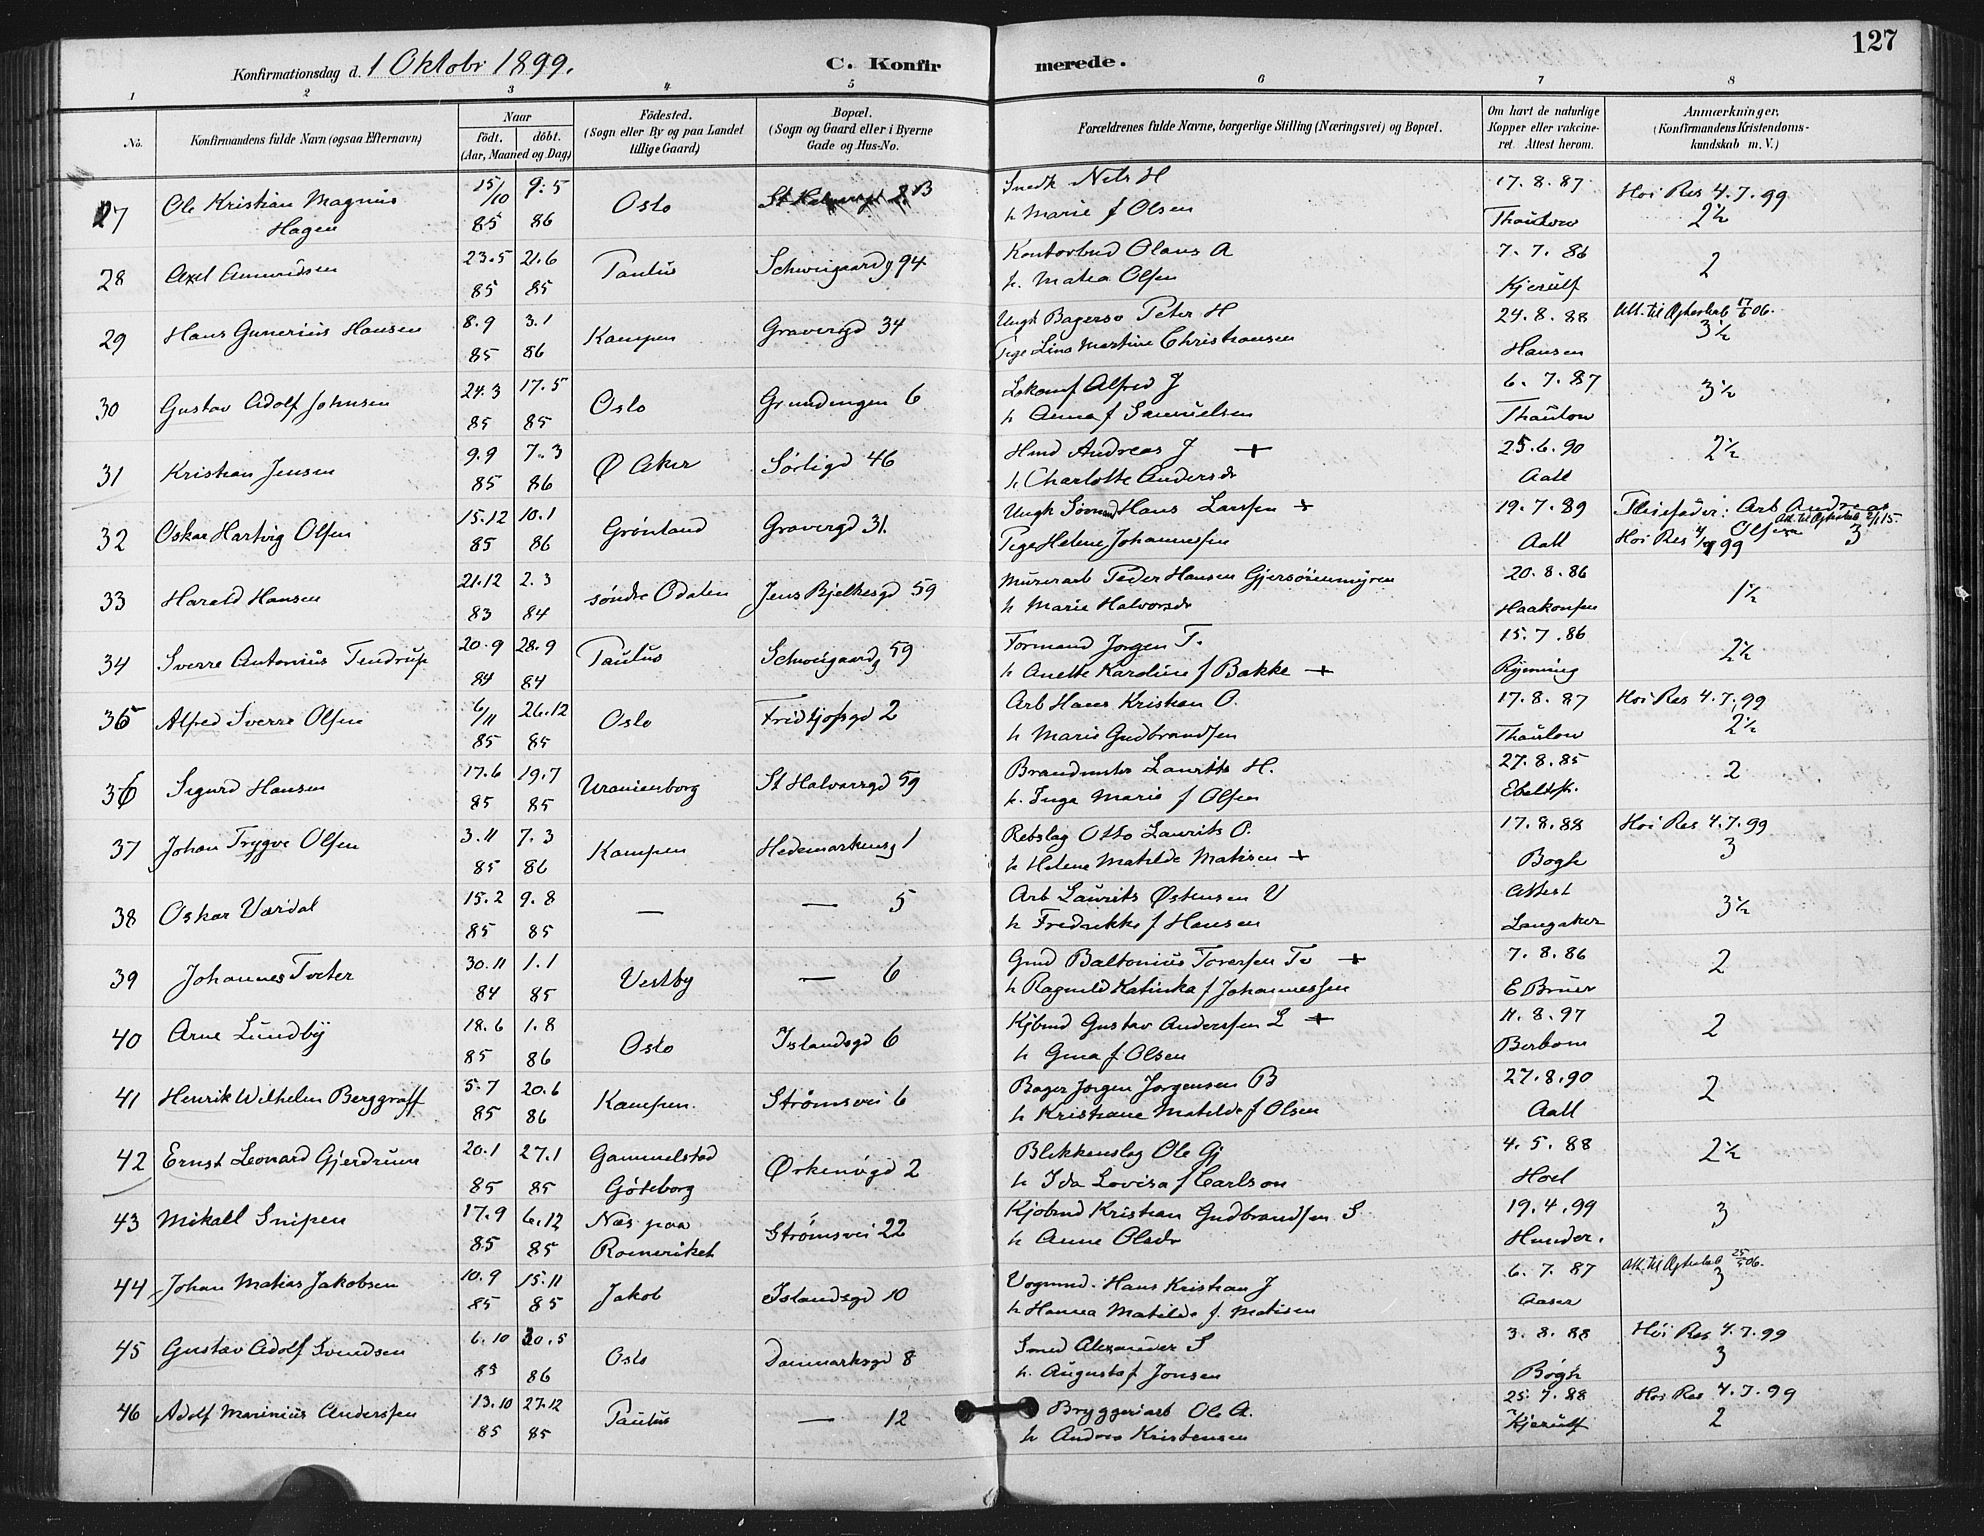 127
Konfirmationsdag d. 1 Oktobr 1899.
C. Konfirmerede.
1 2 3 4 5 6 7 8
No.
Konfirmandens fulde Navn (ogsaa Efternavn)
Naar
født. døbt.
(Aar, Maaned og Dag)
Fødested.
(Sogn eller By og paa Landet
tillige Gaard)
Bopæl.
(Sogn og Gaard eller i Byerne
Gade og Hus-No.
Forældrenes fulde Navne, borgerlige Stilling (Næringsvei) og Bopæl.
Om havt de naturlige
Kopper eller vakcine-
ret. Attest herom.
Anmærkninger.
(Konfirmandens Kristendoms-
kundskab m. V.)
27 Ole Kristian Magnus 15/10 9.5 Oslo 8B Snedk Nels H 17.8.87 Hoi Res 4.7.99
Hagen 85 86 h Marie f Olsen Thaulow 2½
28 Axel Amundsen 23.5 21.6 Paulus Schweigaardg 94 Kontorbud Olaus A 7.7.86 2
85 85 h. Matea Olsen Kjerulf
29 Hans Gunerius Hansen 8.9 3.1 Kampen Gravergd 34 Ungk Bagersv Peter H 24.8.88 Att. til Ægteskab 17/6 06.
85 86 Pige Lina Martine Christiansen Hansen 3½
30 Gustav Adolf Johnsen 24.3 17.5 Oslo Grundingen 6 Lokomf Alfred J 6.7.87 3½
85 85 h Anna f Samuelsen Thaulow
31 Kristian Jensen 9.9 7.3 Ø Aker Sørligd 46 Hmd Andreas J + 25.6.90 2½
85 86 h Charlotte Andersdr Aall
32 Oskar Hartvig Olsen 15.12 10.1 Grønland Gravergd 31. Ungk Sømand Hans Larssen + 19.7.89 Pleiefader: Arb Andreas
85 86 Pige Helene Johannessen Aall Olsen Att. til Ægteskab 2/1 15.
Hoi Res 4/7 99 3
33 Harald Hansen 21.12 2.3 søndre Odalen Jens Bjelkesgd 59 Murerarb Peder Hansen Gjersøienmyren 20.8.86 1½
83 84 h Marie Halvorsdr Haakonsen
34 Sverre Antonius Tendrup 20.9 28.9 Paulus Schweigaardg 59 Formand Jørgen T. 15.7.86 2½
84 84 h Anette Karoline f Bakke + Ryenning
35 Alfred Sverre Olsen 6/11 26.12 Oslo Fridtjofsgd 2 Arb Hans Kristian O. 17.8.87 Hoi Res 4.7.99
85 85 h Marie Gudbrandsen Thaulow 2½
36 Sigurd Hansen 17.6 19.7 Uranienborg St Halvarsgd 59 Brandmster Lauritz H. 27.8.85 2
85 85 h. Inga Marie f Olsen
37 Johan Trygve Olsen 3.11 7.3 Kampen Hedemarkensg 1 Rebslag Otto Laurits O. 17.8.88 Hoi Res 4.7.99
85 86 h Helene Matilde Matisen + Bøgh 3
38 Oskar Værdal 15.2 9.8 — — 5 Arb Laurits Østensen V Attest 3½
85 85 h Fredrikke f Hansen Langaker
39 Johannes Tveter 30.11 1.1 Vestby — 6 Gmd Baltonius Toversen Tv + 7.8.86 2
84 85 h Ragnild Katinka f Johannessen E Bruer
40 Arne Lundby 18.6 1.8 Oslo Islandsgd 6 Kjbmd Gustav Anderssen L + 11.8.97 2
85 86 h Gina f Olsen Berbom
41 Henrik Wilhelm Berggraff 5.7 20.6 Kampen. Strømsvei 6 Bager Jørgen Jørgensen B 27.8.90 2
85 86 h Kristiane Matilde f Olsen Aall
42 Ernst Leonard Gjerdrum 20.1 27.1 Gammelstad Ørkenøgd 2 Blikkenslag Ole Gj 4.5.88 2½
85 85 Göteborg h Ida Lovisa f Carlson Hoel
43 Mikall Snipen 17.9 6.12 Næs paa Strømsvei 22 Kjøbmd Kristian Gudbrandsen S 19.4.99 3
85 85 Romeriket h Anne Olsdr Hunder.
44 Johan Matias Jakobsen 10.9 15.11 Jakob Islandsgd 10 Vognmd. Hans Kristian J 6.7.87 Att. til Ægteskab 25/5 06.
85 85 h Hanna Matilde f. Matisen Aaser 3
45 Gustav Adolf Svendsen 6.10 30.5 Oslo Danmarksgd 8 Smed Alexander S 3.8.88 Hoi Res 4.7.99
85 86 h. Augusta f Jonsen Bøgh 3
46 Adolf Marinius Anderssen 13.10 27.12 Paulus — 12 Bryggeriarb Ole A. 25.7.88 Hoi Res 4.7.99
85 85 h Andrea Kristensen Kjerulf 2